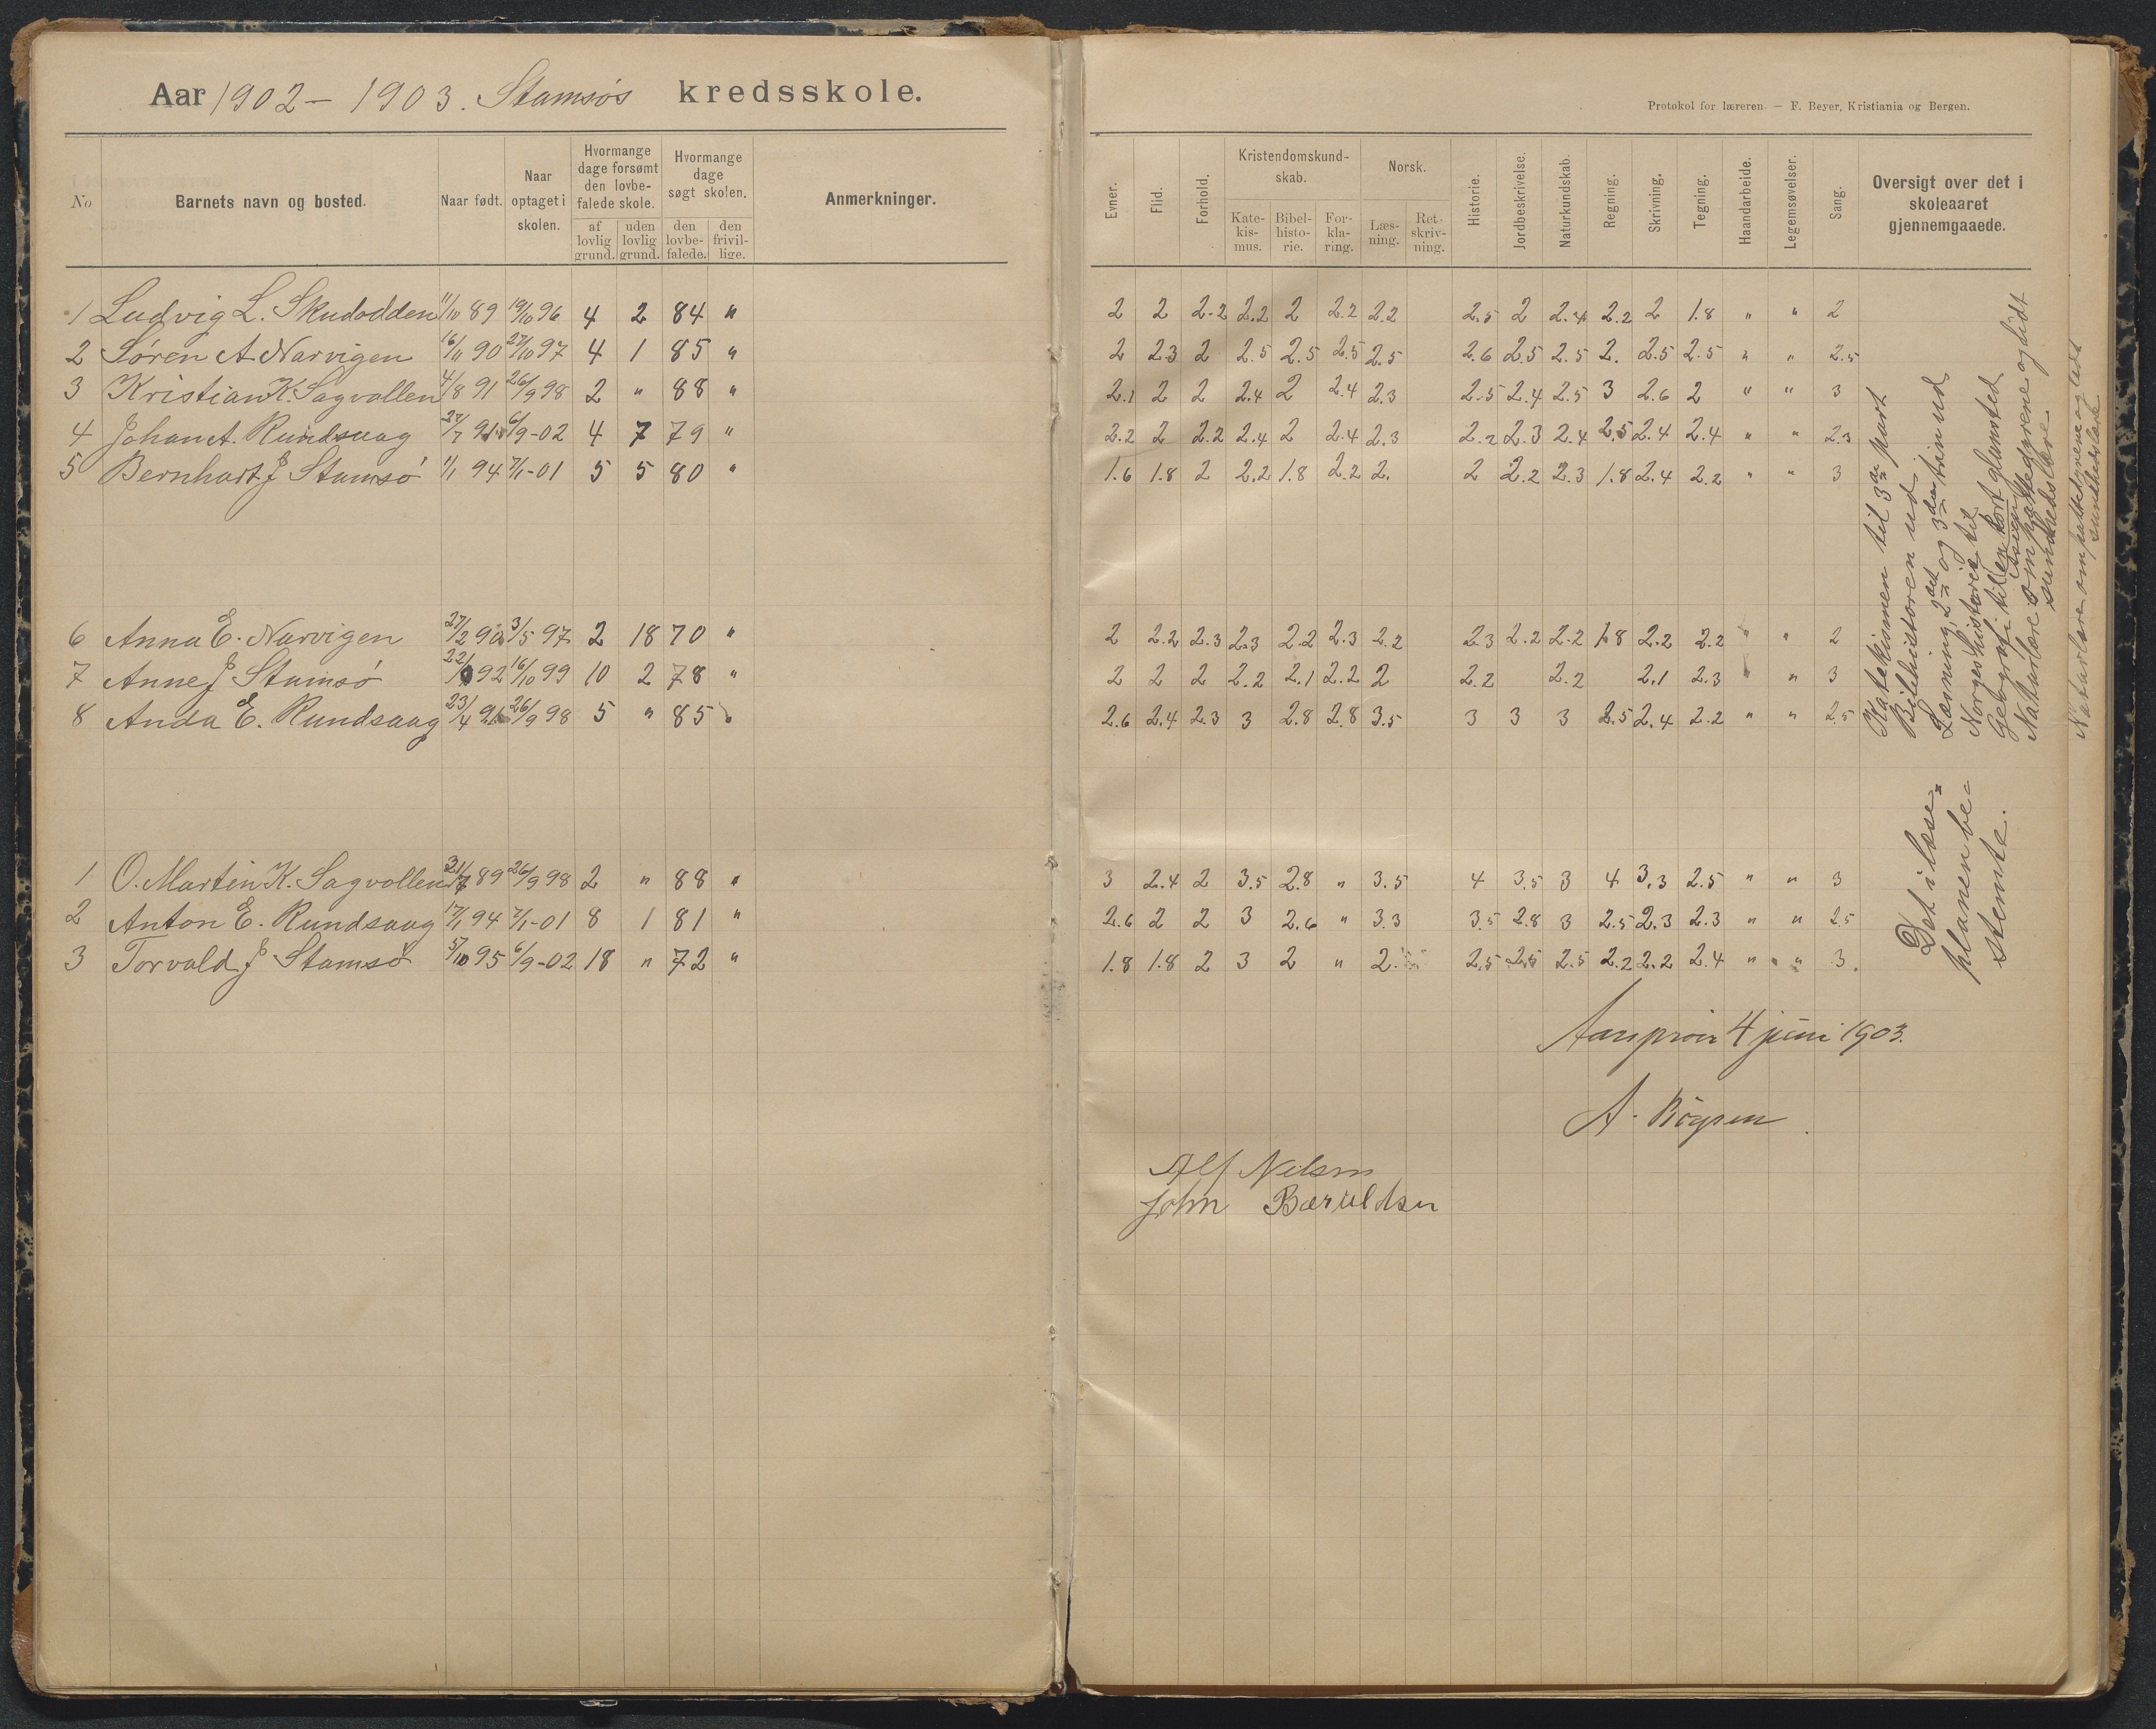 Aar 1902 – 1903. Stamsøs kredsskole.
No
Barnets navn og bosted.
Naar født.
Naar optaget i skolen.
Hvormange dage forsømt den lovbefalede skole.
af lovlig grund.
uden lovlig grund.
Hvormange dage søgt skolen.
den lovbefalede.
den frivillige.
Anmerkninger.
1 Ludvig L. Skudodden 11/10 89 19/10 96 4 2 84 "
2 Søren A. Narvigen 16/11 90 27/10 97 4 1 85 "
3 Kristian K. Sagvollen 4/8 91 26/9 98 2 " 88 "
4 Johan A. Rundsaag 27/7 91 6/9-02 4 7 79 "
5 Bernhart J Stamsø 1/1 94 7/1-01 5 5 80 "
6 Anna E. Narvigen 27/2 90 3/5 97 2 18 70 "
7 Anne J Stamsø 92 16/10 99 10 2 78 "
8 Anda E. Rundsaag 23/4 26/9 98 5 " 85 "
1 O. Martin K. Sagvollen 89 26/9 98 2 " 88 "
2 Anton E. Rundsaag 17/1 94 7/1-01 8 1 81 "
3 Torvald J Stamsø 5/10 95 6/9-02 18 " 72 "
Protokol for læreren. — F. Beyer, Kristiania og Bergen.
Evner.
Flid.
Forhold.
Kristendomskundskab.
Katekismus.
Bibelhistorie.
Forklaring.
Norsk.
Læsning.
Retskrivning.
Historie.
Jordbeskrivelse.
Naturkundskab.
Regning.
Skrivning.
Tegning.
Haandarbeide.
Legemsøvelser.
Sang.
Oversigt over det i skoleaaret gjennemgaaede.
2 2 2.2 2.2 2 2.2 2.2 2.5 2 2.4 2.2 2 1.8 " " 2
2 2.3 2 2.5 2.5 2.5 2.5 2.6 2.5 2.5 2. 2.5 2.5 " " 2.5
2.1 2 2 2.4 2 2.4 2.3 2.5 2.4 2.5 3 2.6 2 " " 3
2.2 2 2.2 2.4 2 2.4 2.3 2.2 2.3 2.4 2.5 2.4 2.4 " " 2.3
1.6 1.8 2 2.2 1.8 2.2 2. 2 2.2 2.3 1.8 2.4 2.2 " " 3
2 2.2 2.3 2.3 2.2 2.3 2.2 2.3 2.2 2.2 1.8 2.2 2.2 " " 2
2 2 2 2.2 2.1 2.2 2 2.2 2.2 2.1 2.3 " " 3
2.6 2.4 2.3 3 2.8 2.8 3.5 3 3 3 2.5 2.4 2.2 " " 2.5
3 2.4 2 3.5 2.8 " 3.5 4 3.5 3 4 3.3 2.5 " " 3
2.6 2 2 3 2.6 " 3.3 3.5 2.8 3 2.5 2.3 2.3 " " 2.5
1.8 1.8 2 3 2 " 2. 2.5 2.5 2.5 2.2 2.2 2.4 " " 3.
Katekismen til 3die part
Bibelhistorien ud
Læsning, 2det og 3die trin ud
Norgeshistorie til
Geografi til
Naturlære om pattedyrene og lidt
sundhedslære
Naturlære om pattedyrene og lidt
sundhedslære
Det i læse=
planen be=
stemte.
Aarsprøve 4 juni 1903.
Alf Nilsen
John Bæruldsen